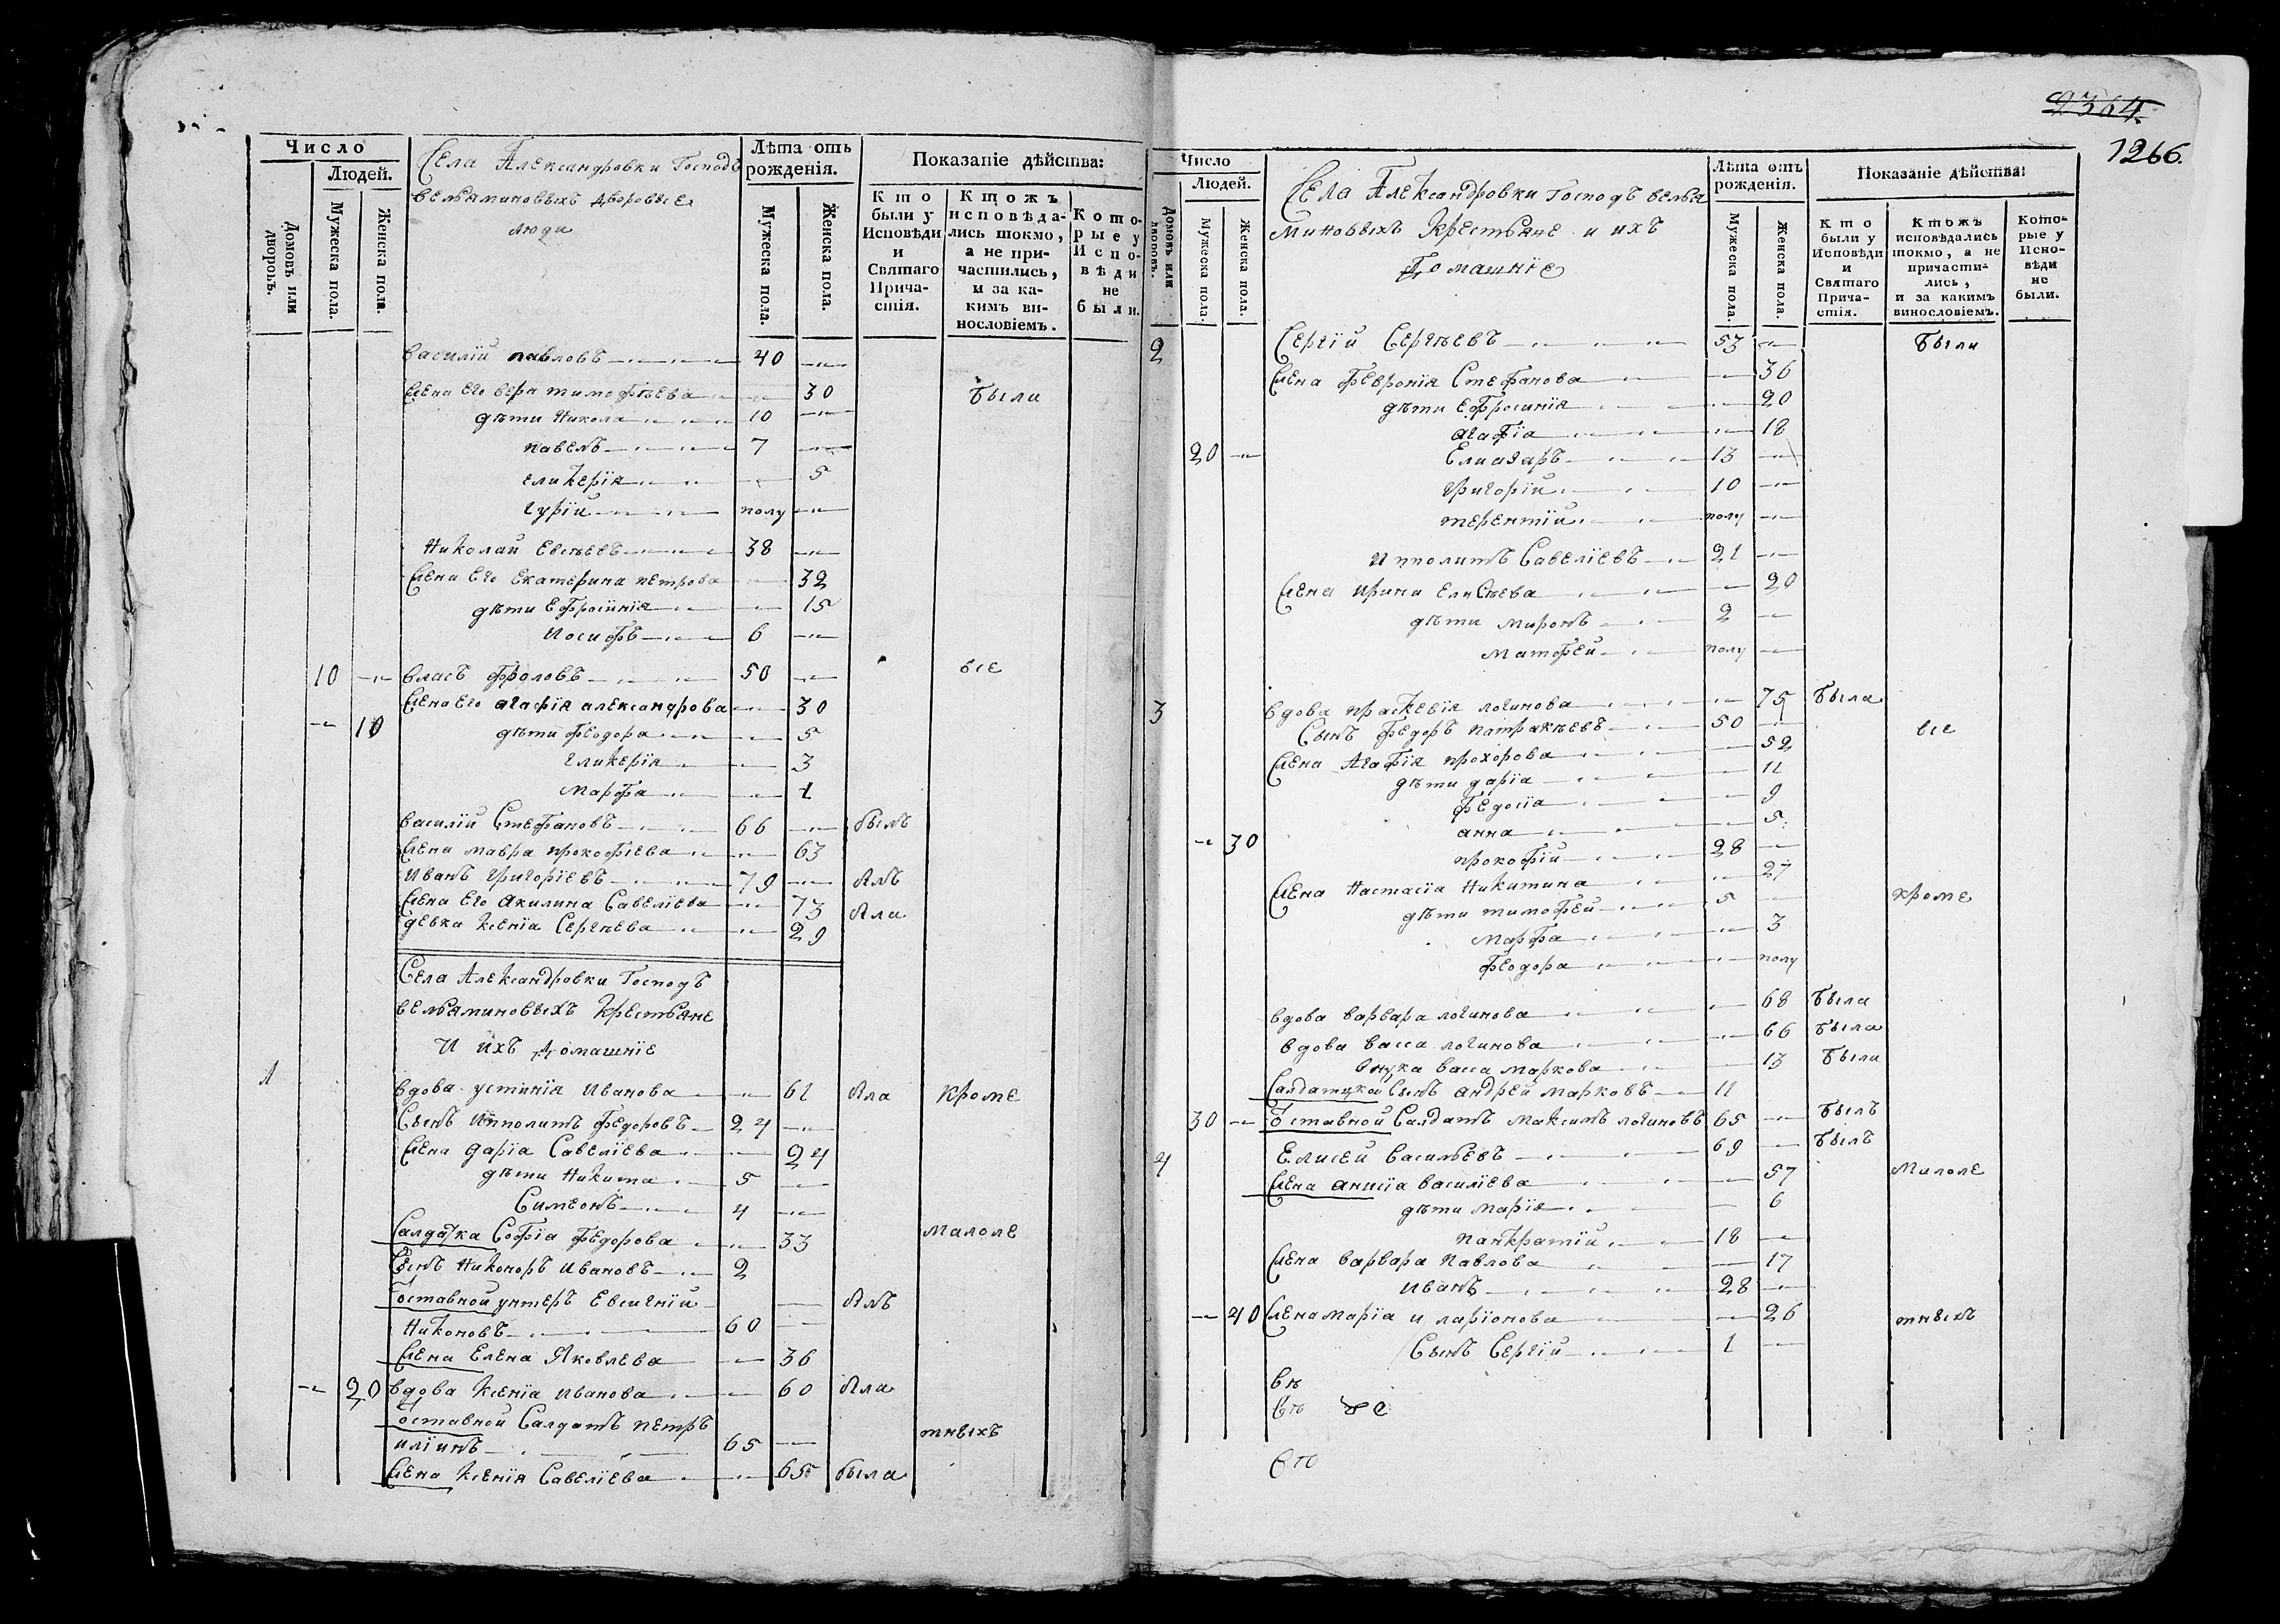 Число
Людей.
Домовъ или дворовъ.
Мужеска пола.
Женска пола.
Села Александровки Господъ
вельяминовыхъ дворовые
люди
Лѣта отъ рожденія.
Мужеска пола.
Женска пола.
Показаніе дѣйства:
Кто были у Исповѣди и Святаго Прича-стія.
Ктожъ исповѣда-лись токмо, а не при-частились, и за ка-кимъ ви-нословіемъ.
Кото-рые у Испо-вѣди не были.
василий павловъ 40
жена его вера тимофѣева 30 были
дѣти Никола 10
павелъ 7
гликерія 5
гурій полу
Николай Евсѣевъ 38
жена его екатерина петрова 32
дѣти Ефросинія 15
иосифъ 6
10 власъ фроловъ 50 все
жена его агафія александрова 30
10 дѣти феодора 5
гликерія 3
марфа 1
василій Стефановъ 66 былъ
жена мавра прокофіева 63
иванъ григоріевъ 79 ялъ
жена его акилина Савеліева 73 яла
девка ксенія Сергѣева 29
Села Александровки Господъ
вельяминовыхъ крестьяне
и ихъ домашніе
1 вдова устинія иванова 61 яла кроме
Сынъ ипполитъ федоровъ 24
жена дарія Савеліева 24
дѣти никита 5
Симеонъ 4
Салдатка Софія федорова 33 малоле
Сынъ никоноръ ивановъ 2
оставной унтеръ Евсигній ялъ
никоновъ 60
жена Елена Яковлева 36
20 вдова ксенія иванова 60 яла
оставной Салдатъ петръ
иліинъ 65 тныхъ
жена ксенія Савеліева 65 была
2364
1266.
Число
Людей.
Домовъ или дворовъ.
Мужеска пола.
Женска пола.
Села Александровки Господъ велья
миновыхъ крестьяне и ихъ
домашніе
Лѣта отъ рожденія.
Мужеска пола.
Женска пола.
Показаніе дѣйства:
Кто были у Исповѣди и Святаго Прича-стія.
Ктожъ исповѣдались токмо, а не причасти-лись, и за какимъ винословіемъ.
Кото-рые у Испо-вѣди не были.
2 Сергій Сергѣевъ 53 были
жена февронія Стефанова 36
дѣти ефросинія 20
агафія 18
20 Елиазаръ 13
григорій 10
терентій полу
ипполитъ Савеліевъ 21
жена ирина елисѣева 20
дѣти миронъ 2
матфей полу
3 вдова праскевія логинова 75 была
Сынъ федоръ патракѣевъ 50 все
жена агафія прохорова 52
дѣти дарія 11
федосія 9
30 анна 5
прокофій 28
жена настасія никитина 27
дѣти тимофей 5 кроме
марфа 3
феодора полу
вдова варвара логинова 68 была
вдова васса логинова 66 была
внука васса маркова 13 была
Салдатской Сынъ андрей марковъ 11
30 оставной Салдатъ максимъ логиновъ 65 былъ
4 Елисей васильевъ 69 былъ
жена анисія василіева 57 малоле
дѣти марія 6
панкратій 18
жена варвара павлова 17
иванъ 28
40 жена марія иларіонова 26 тныхъ
Сынъ Сергій 1